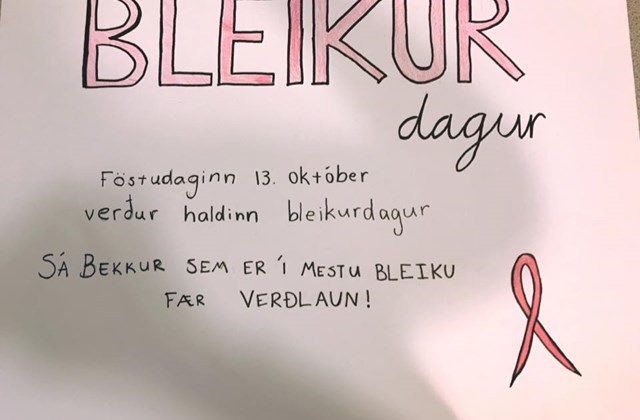 BLEIKUR
dagur
Föstudaginn 13. október
verður haldinn bleikurdagur
SÁ BEKKUR SEM ER Í MESTU BLEIKU
FÆR VERÐLAUN!